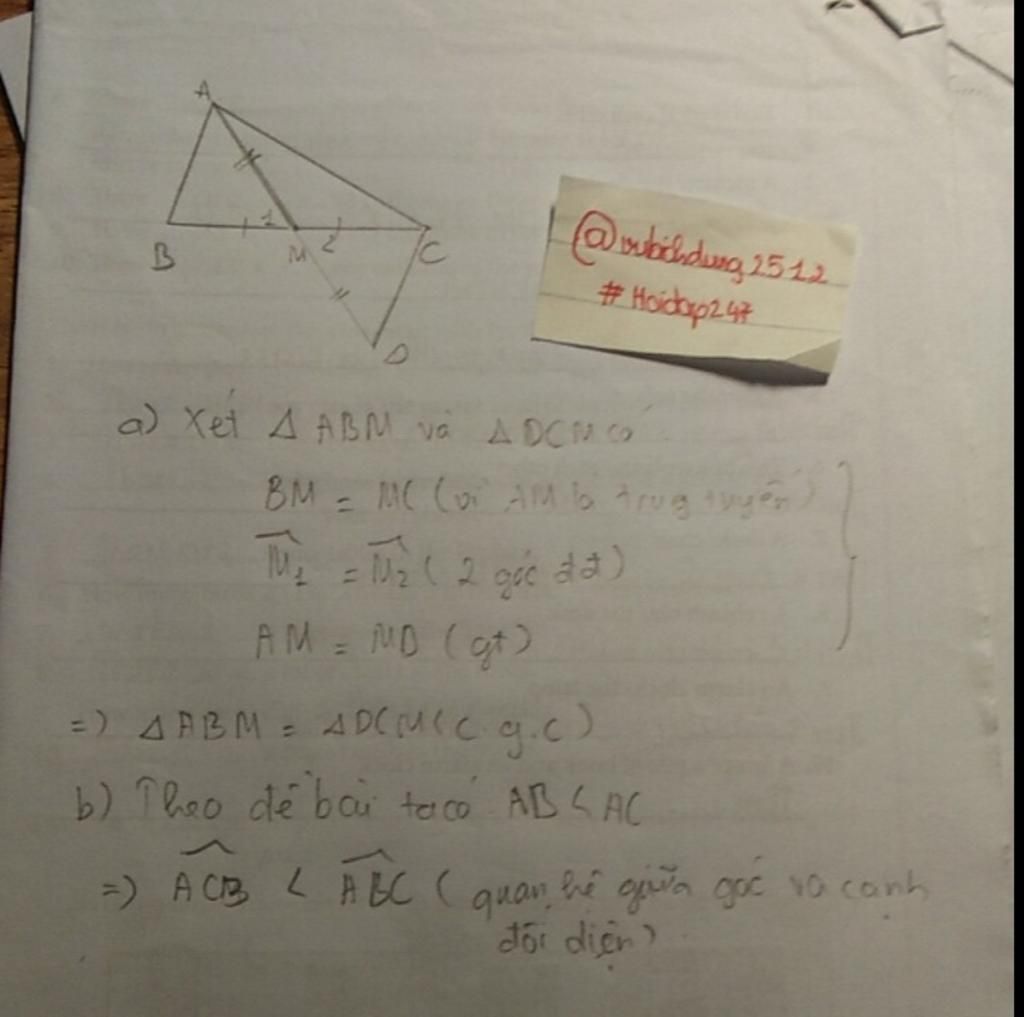 A
B
1
M
2
C
D
@vubichdung2512
#Hoidap247
a) Xét Δ ABM và Δ DCM có
BM = MC (vì AM là trung tuyến)
M̂₁ = M̂₂ ( 2 góc đđ)
AM = MD (gt)
=) Δ ABM = Δ DCM (c.g.c)
b) Theo đề bài ta có AB < AC
=) ACB < ABC ( quan hệ giữa góc và cạnh
đối diện)